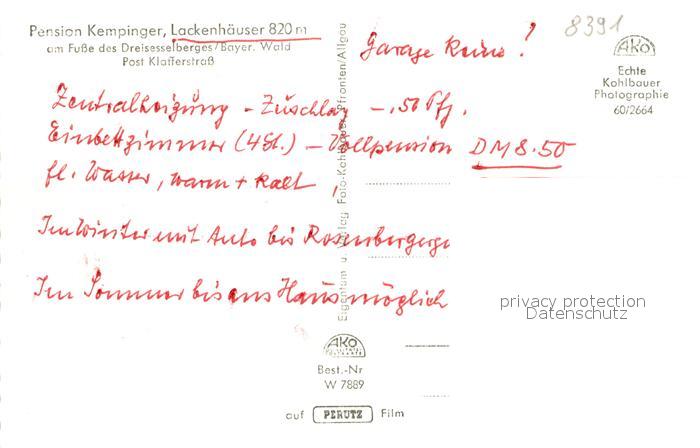 Pension Kempinger, Lackenhäuser 820 m
am Fuße des Dreisesselberges/Bayer. Wald
Post Klafferstraß
Garage Keine!
8391
AKO
Echte
Kohlbauer
Photographie
60/2664
Zentralheizung - Zuschlag -.50 Pfg.
Einbettzimmer (4St.) - Vollpension DM 8.50
fl. Wasser, warm + kalt,
Im Winter mit Auto bis Rosenberger
Im Sommer bis ans Haus möglich
Eigentum u. Verlag Foto-Kohlbauer, Pfronten/Allgäu
privacy protection
Datenschutz
AKO
Best.-Nr
W 7889
auf PERUTZ Film